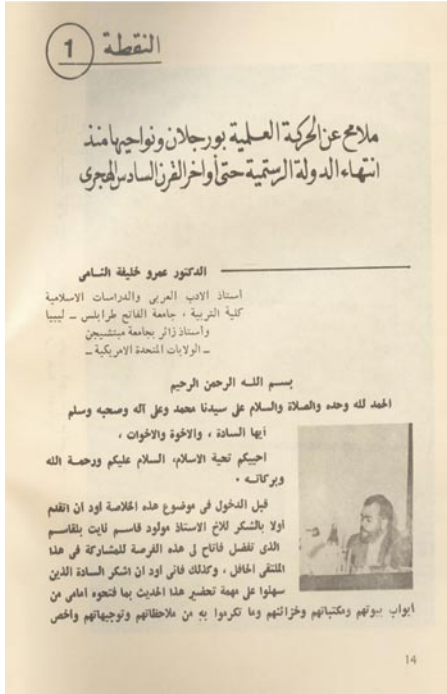 النقطة 1
ملامح عن الحركة العلمية بورجلان ونواحيها منذ
انتهاء الدولة الرستمية حتى أواخر القرن السادس الهجرى
الدكتور عمرو خليفة النامى
أستاذ الادب العربى والدراسات الاسلامية
كلية التربية ، جامعة الفاتح طرابلس ــ ليبيا
وأستاذ زائر بجامعة ميتشيجن
ــ الولايات المتحدة الامريكية ــ
بسم اللـه الرحمن الرحيم
الحمد لله وحده والصلاة والسلام على سيدنا محمد وعلى آله وصحبه وسلم
أيها السادة ، والاخوة والاخوات ،
احييكم تحية الاسلام، السلام عليكم ورحمة الله
وبركاتـه ٠
قبل الدخول فى موضوع هذه الخلاصة اود ان اتقدم
أولا بالشكر للاخ الاستاذ مولود قاسـم نايت بلقاسـم
الذى تفضل فاتاح لى هذه الفرصة للمشاركة فى هذا
الملتقى الحافل ، وكذلك فانى اود ان اشكر السادة الذين
سهلوا على مهمة تحضير هذا الحديث بما فتحوه امامى من
ابواب بيوتهم ومكتباتهم وخزائنهم وما تكرموا به من ملاحظاتهم وتوجيهاتهم واخص
14